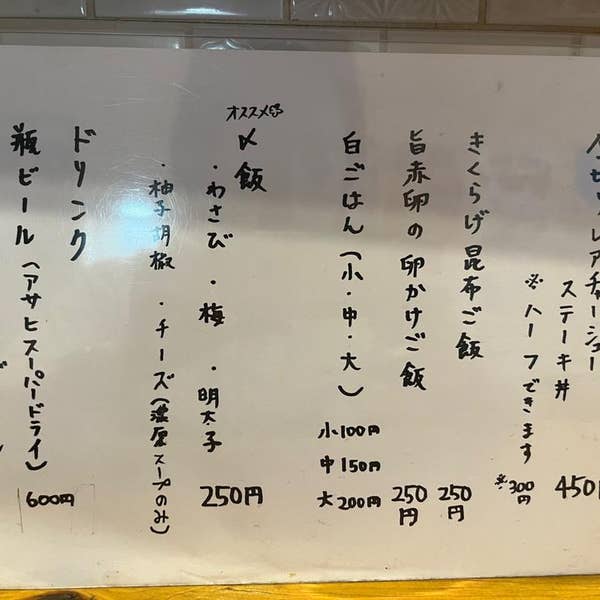 レアチャーシュー
ステーキ丼 450円
※ハーフできます ※300円
きくらげ昆布ご飯 250円
旨赤卵の卵かけご飯 250円
白ごはん(小・中・大)
小100円
中150円
大200円
オススメ
〆飯
・わさび ・梅 ・明太子 250円
・柚子胡椒 ・チーズ(濃厚スープのみ)
ドリンク
瓶ビール(アサヒスーパードライ) 600円